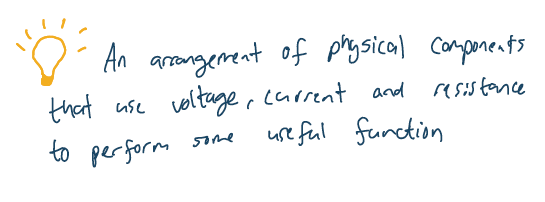 An arrangement of physical components
that use voltage, current and resistance
to perform some useful function